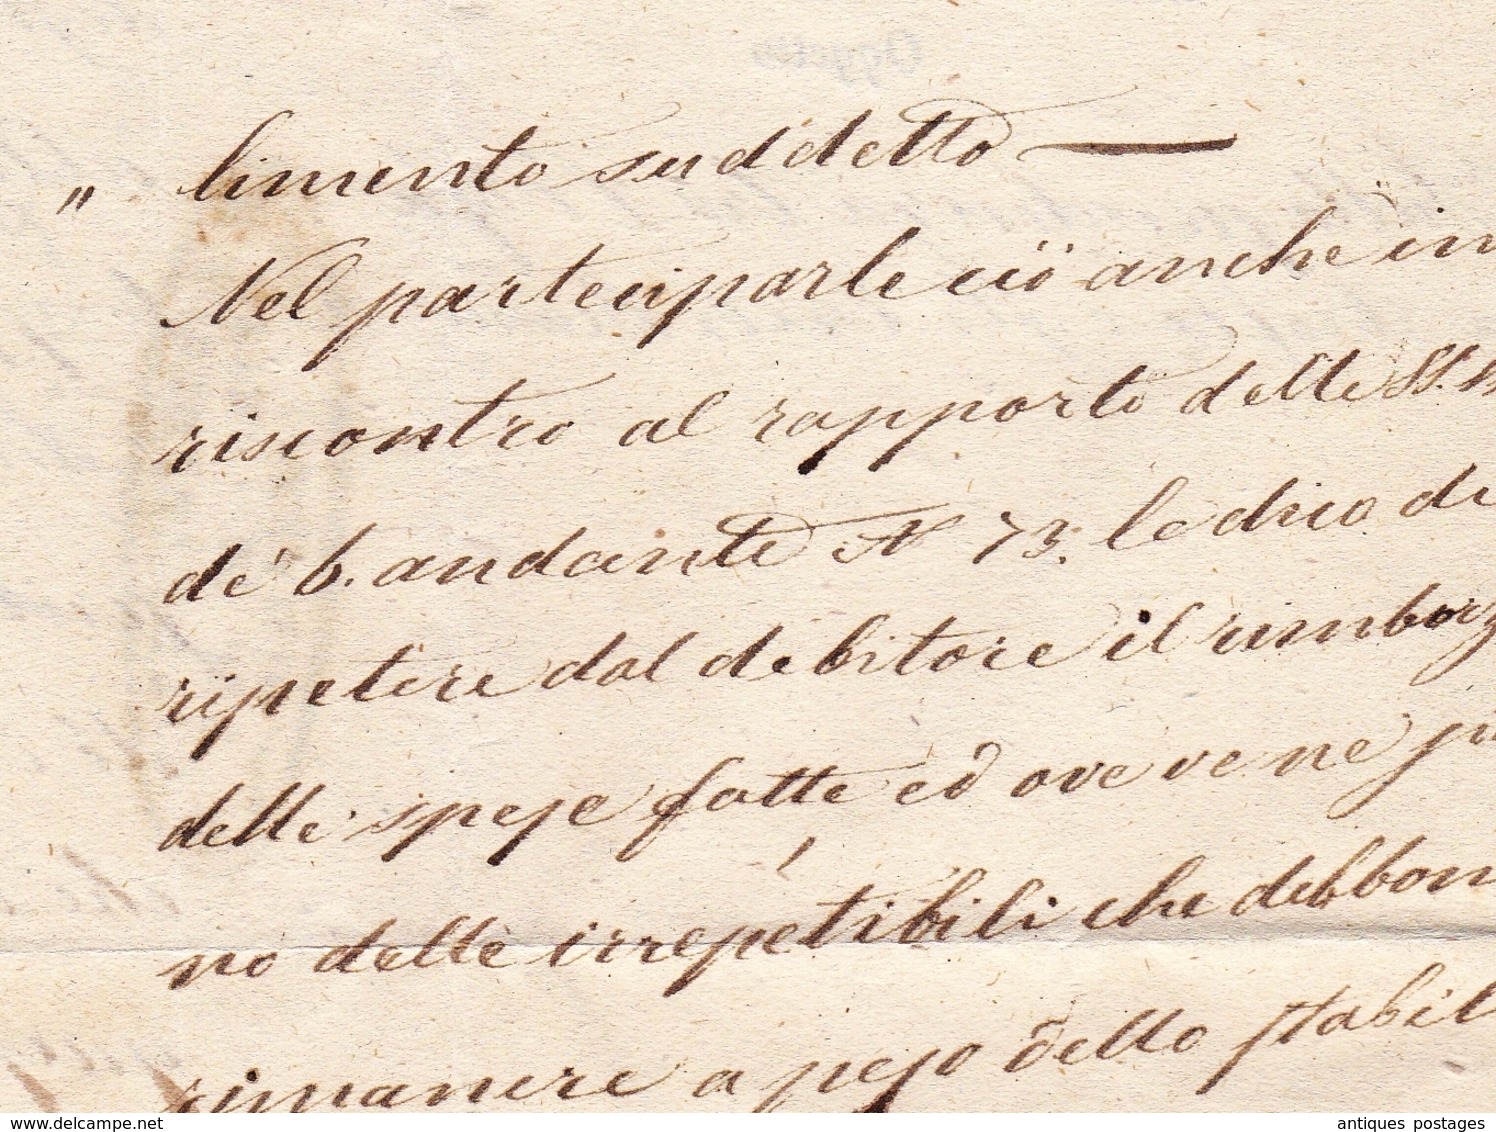 " limento suddetto —
Nel parteciparle ciò anche in
riscontro al rapporto delle SS.
de' 6. andante N 73. le dico di
ripetere dal debitore il rimborz
delle spese fatte ed ove ve ne
no delle irrepetibili che debbon
rimanere a peso dello stabil
www.delcampe.net
antiques postages